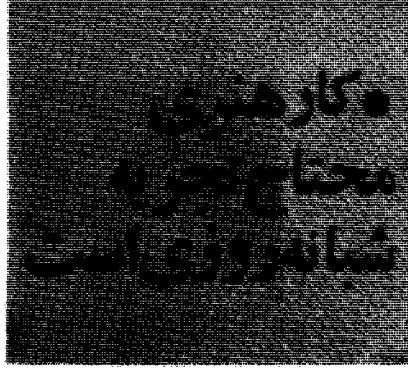 ● کار هنری
محتاج تجربه
شبانه‌روزی است